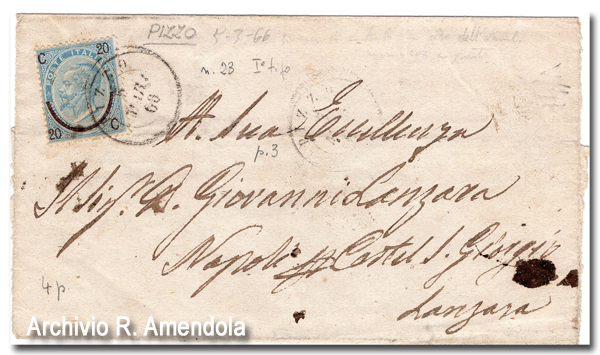 PIZZO 8-3-66
C 20
POSTE ITALIANE
20 C
PIZZO
MAR
66
n. 23 I° tipo
A Sua Eccellenza
p. 3
Il Sig. D. Giovanni Lanzara
Napoli Castel S. Giorgio
4 p.
Lanzara
Archivio R. Amendola